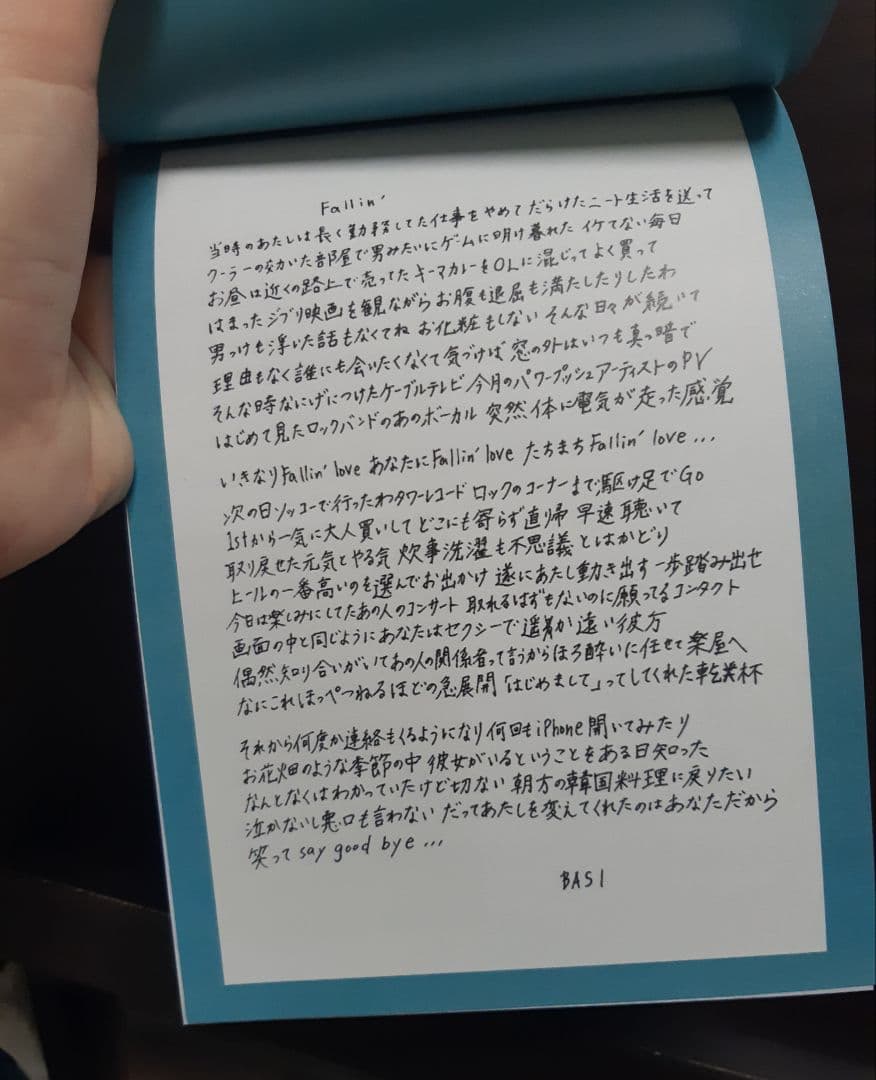 Fallin'
当時のあたしは長く勤務してた仕事をやめて だらけたニート生活を送って
クーラーの効いた部屋で男みたいにゲームに明け暮れた イケてない毎日
お昼は近くの路上で売ってたキーマカレーをOLに混じってよく買って
はまったジブリ映画を観ながら お腹も退屈も満たしたりしたわ
男っけも浮いた話もなくてね お化粧もしない そんな日々が続いて
理由もなく誰にも会いたくなくて気づけば 窓の外はいつも真っ暗で
そんな時なにげにつけたケーブルテレビ 今月のパワープッシュアーティストのPV
はじめて見たロックバンドのあのボーカル 突然体に電気が走った感覚
いきなりFallin' love あなたにFallin' love たちまちFallin' love...
次の日ソッコーで行ったわタワーレコード ロックのコーナーまで駆け足でGo
1stから一気に大人買いして どこにも寄らず直帰 早速聴いて
取り戻せた元気とやる気 炊事洗濯も不思議とはかどり
ヒールの一番高いのを選んでお出かけ 遂にあたし動き出す一歩踏み出せ
今日は楽しみにしてたあの人のコンサート 取れるはずもないのに願ってるコンタクト
画面の中と同じようにあなたはセクシーで 遥か遠い彼方
偶然知り合いがいてあの人の関係者って言うからほろ酔いに任せて楽屋へ
なにこれほっぺつねるほどの急展開「はじめまして」ってしてくれた乾杯
それから何度か連絡もくるようになり 何回もiPhone開いてみたり
お花畑のような季節の中 彼女がいるということをある日知った
なんとなくはわかっていたけど切ない 朝方の韓国料理に戻りたい
泣かないし悪口も言わない だってあたしを変えてくれたのはあなただから
笑って say good bye...
BASI